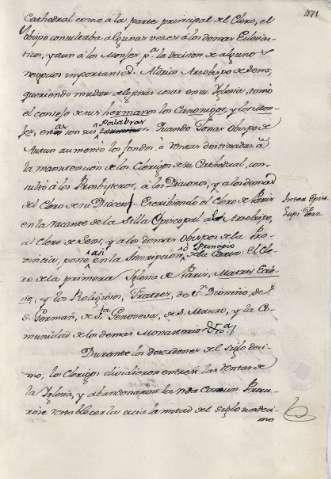 Cathedral como à la parte principal del Clero, el
Obispo consultaba algunas veces à los demas Eclesiás-
ticos, y aun à los Monjes p.ª la decision de algunos
negocios importantes. Alarico Arzobispo de Sens,
queriendo mudar algunas cosas en su Iglesia, tomo
el consejo de sus hermanos los Canonigos, y los Mon-
jes, en sus palabras. Quando Jonas Obispo de
Autun aumentó los fondos, ò rentas destinadas à
la manutencion de los Clerigos de su Cathedral, con-
sultó à los Presbyteros, à los Diaconos, y à los demas
del Clero de su Diocesi. Escribiendo el Clero de Paris
en la vacante de la Silla Episcopal al Arzobispo,
al Clero de Sens, y à los demas Obispos de la Pro-
vincia, pone en la inscripcion, el Cle-
ro de la primera Iglesia de Paris, Maria
y los Religiosos, Fratres, de S.n Dionisio, de S.
German, de S.ta Genoveva, de S. Mauro, y la Co-
munidad de los demas Monasterios &c.a
Durante los desordenes del siglo deci-
mo, los Clerigos dividieron entre sí las rentas de
la Iglesia, y abandonaron la vida comun. Pero
se restablecer la acia la mitad del siglo unde-
cimo